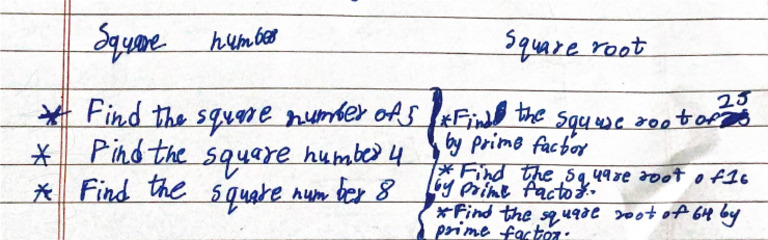 Square number
Square root
* Find the square number of 5
* Find the square number 4
* Find the square number 8
* Find the square root of 25
by prime factor
* Find the square root of 16
by prime factor.
* Find the square root of 64 by
prime factor.